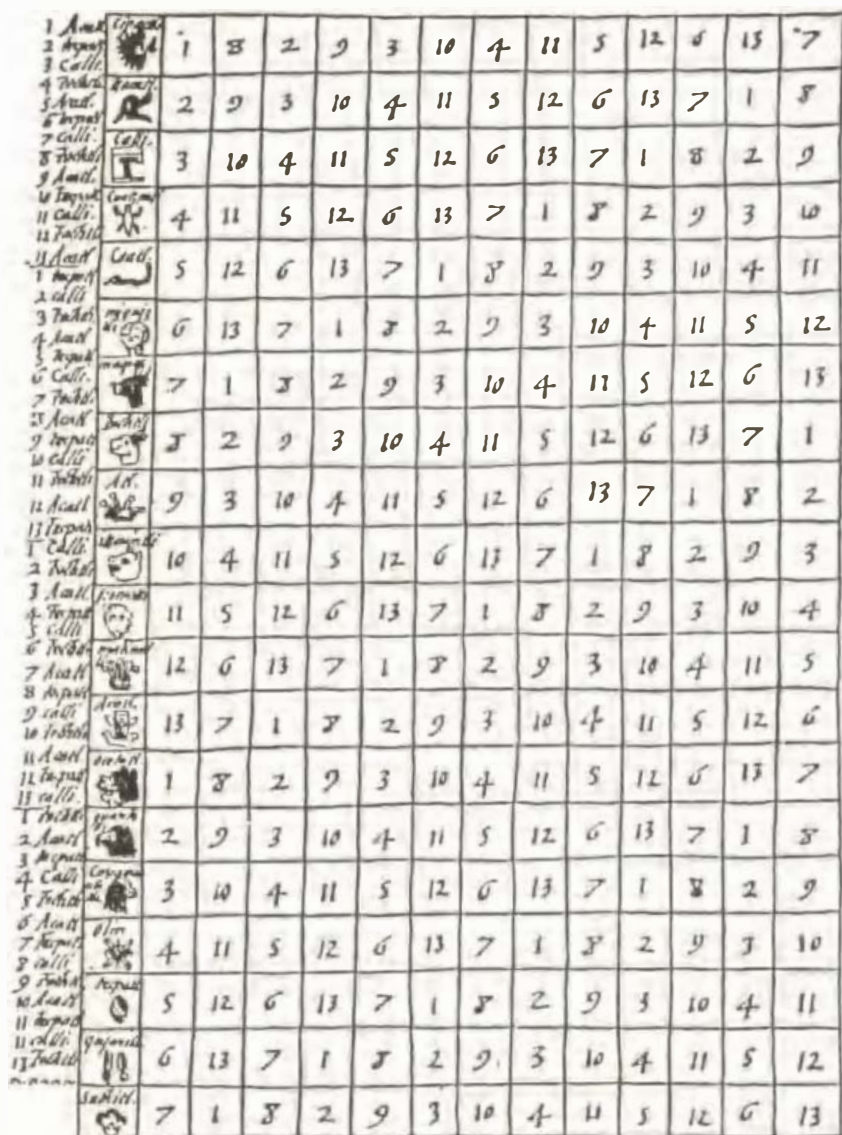 1 Acatl
2 Tecpat
3 Calli
4 Tochtli
5 Acatl.
6 Tecpat
7 Calli.
8 Tochtli
9 Acatl
10 Tecpat
11 Calli.
12 Tochtli
13 Acatl
1 Tecpatl
2 calli
3 Tochtli
4 Acatl
5 Tecpatl
6 Calli.
7 Tochtli
8 Acatl
9 Tecpat
10 Calli
11 Tochtli
12 Acatl
13 Tecpat
1 Calli
2 Tochtli
3 Acatl
4 Tecpat
5 Calli
6 Tochtli
7 Acatl
8 Tecpatl
9 calli
10 Tochtli
11 Acatl
12 Tecpat
13 calli.
1 Tochtli
2 Acatl
3 Tecpat
4 Calli
5 Tochtli
6 Acatl
7 Tecpat
8 calli
9 Tochtli
10 Acatl
11 Tecpatl
11 calli
13 Tochtli
1 8 2 9 3 10 4 11 5 12 6 13 7
2 9 3 10 4 11 5 12 6 13 7 1 8
Calli. 3 10 4 11 5 12 6 13 7 1 8 2 9
4 11 5 12 6 13 7 1 8 2 9 3 10
Coatl. 5 12 6 13 7 1 8 2 9 3 10 4 11
6 13 7 1 8 2 9 3 10 4 11 5 12
7 1 8 2 9 3 10 4 11 5 12 6 13
Tochtli 8 2 9 3 10 4 11 5 12 6 13 7 1
Atl. 9 3 10 4 11 5 12 6 13 7 1 8 2
10 4 11 5 12 6 13 7 1 8 2 9 3
11 5 12 6 13 7 1 8 2 9 3 10 4
12 6 13 7 1 8 2 9 3 10 4 11 5
Acatl. 13 7 1 8 2 9 3 10 4 11 5 12 6
1 8 2 9 3 10 4 11 5 12 6 13 7
2 9 3 10 4 11 5 12 6 13 7 1 8
3 10 4 11 5 12 6 13 7 1 8 2 9
Olin 4 11 5 12 6 13 7 1 8 2 9 3 10
tecpatl 5 12 6 13 7 1 8 2 9 3 10 4 11
6 13 7 1 8 2 9. 3 10 4 11 5 12
Suchitl. 7 1 8 2 9 3 10 4 11 5 12 6 13